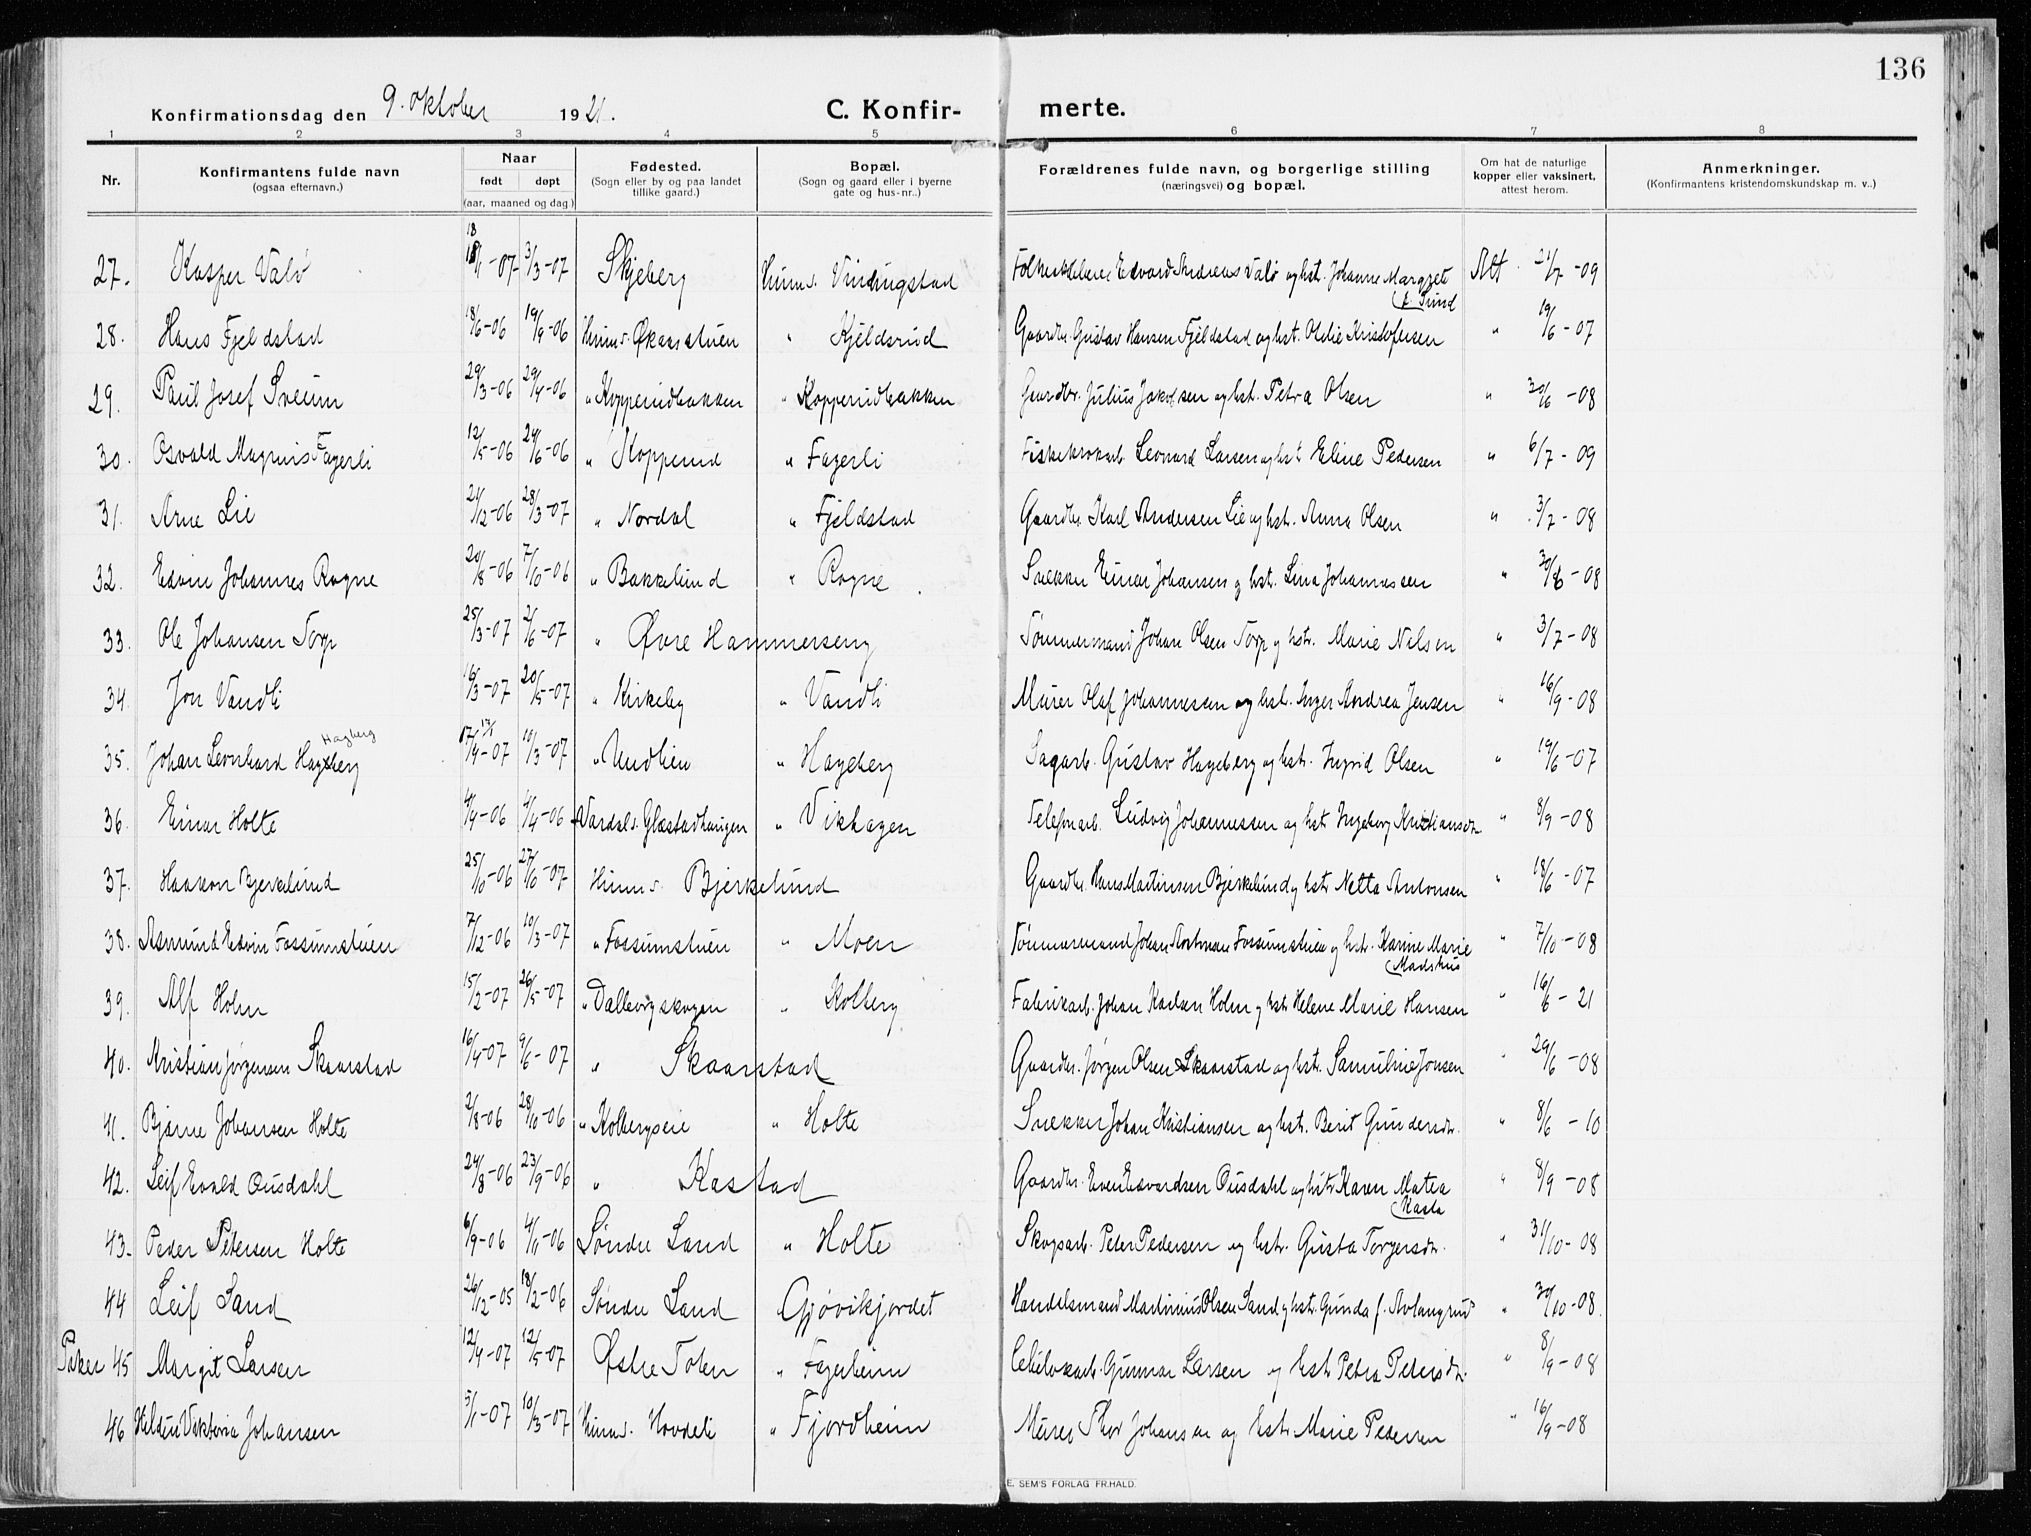 136
Konfirmationsdag den 9. oktober 1921. C. Konfirmerte.
1 2 3 4 5 6 7 8
Nr. Konfirmantens fulde navn (ogsaa efternavn.) Naar født døpt (aar, maaned og dag.) Fødested. (Sogn eller by og paa landet tillike gaard.) Bopæl. (Sogn og gaard eller i byerne gate og hus-nr..) Forældrenes fulde navn, og borgerlige stilling (næringsvei) og bopæl. Om hat de naturlige kopper eller vaksinert, attest herom. Anmerkninger. (Konfirmantens kristendomskundskap m. v..)
27. Kasper Valø 18/1-07 3/3-07 Skjeberg Hunns. Vindingstad Edvard Andreas Valø og hst. Johanne Margrete f. Sund Att. 21/7-09
28. Hans Fjeldstad 18/6-06 19/9-06 Hunns. Økaasstuen " Kjeldsrud Gaardbr. Gustav Hansen Fjeldstad og hst. Oldie Kristofersen " 19/6-07
29. Paul Josef Sveum 29/3-06 29/4-06 " Kopperudbakken " Kopperudbakken Gaardbr. Julius Jakobsen og hst. Petra Olsen " 30/6-08
30. Osvald Magnus Fagerli 12/5-06 24/6-06 " Kopperud " Fagerli Fiskekrokarb. Leonard Larsen og hst. Eline Pedersen " 6/7-09
31. Arne Lie 21/12-06 28/3-07 " Nordal " Fjeldstad Gaardbr. Karl Andersen Lie og hst. Anna Olsen " 3/7-08
32. Edvin Johannes Rogne 20/8-06 7/10-06 " Bakkelund " Rogne Snekker Einar Johansen og hst. Lina Johannessen " 30/6-08
33. Ole Johansen Torp 25/3-07 2/6-07 " Øvre Hammerseng Tømmermand Johan Olsen Torp og hst. Marie Nilsen " 3/7-08
34. Jon Vandli 16/3-07 20/5-07 " Kirkeby " Vandli Murer Olaf Johannessen og hst. Inger Andrea Jensen " 16/9-08
35. Johan Leonhard Hageberg Hagberg 17/1-07 10/3-07 " Hageberg Sagarb. Gustav Hageberg og hst. Ingrid Olsen " 19/6-07
36. Einar Holte 4/4-06 Vardals. Glæstadhaugen " Vikhagen Telefonarb. Ludvig Johannessen og hst Ingeborg Kristiansdtr " 8/9-08
37. Haakon Bjerkelund 25/10-06 Hunns. Bjerkelund Gaardbr. Hans Martinsen Bjerkelund og hst. Netta Antonsen " 18/6-07
38. Asmund Edvin Fossumstuen 7/12-06 10/3-07 " Fossumstuen " Moen Tømmermand Johan Fossumstuen og hst. Karine Marie Madshus " 7/10-08
39. Alf Holm 15/2-07 26/5-07 " Dallevigskogen " Kolberg Fabrikarb. Johan Karlsen Holm og hst Helene Marie Hansen " 16/6-21
40. Kristian Jørgensen Skaarstad 16/4-07 9/6-07 " Skaarstad Gaardbr. Jørgen Olsen Skaarstad og hst. Samuline Jonsen " 29/6-08
41. Bjarne Johansen Holte 2/8-06 28/10-06 " Kolbergseie " Holte Snekker Johan Kristiansen og hst. Berit Gundersdtr. " 8/6-10
42. Leif Evald Ousdahl 24/8-06 23/9-06 " Kastad Gaardbr. Even Edvardsen Ousdahl og hst Karen Matea Kasta " 8/9-08
43. Peder Petersen Holte 6/9-06 4/11-06 Søndre Land " Holte Skogsarb. Peder Pedersen og hst. Gusta Torgersdtr. " 31/10-08
44 Leif Sand 26/12-05 18/2-06 Søndre Land Gjøvikjordet Handelsmand Martinius Olsen Sand og hst. Gunda f. " 30/10-08.
Piker 45 Margit Larsen 12/4-07 12/5-07 Østre Toten " Fagerheim Gunnar Larsen og hst Petra Pedersdtr. " 8/9-08
46 Viktoria Johansen 5/1-07 10/3-07 Hunns. Hovdeli " Fjordheim Murer Thor Johansen og hst Marie Pedersen " 16/9-08
E. SEM'S FORLAG FR.HALD.